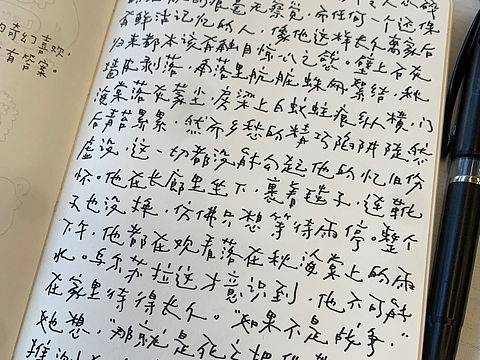 的奇幻喜欢,
有答案。
毫无察觉,而任何一个还保
有鲜活记忆的人,像他这样长久离家后
归来都本该有触目惊心之感。壁上石灰
墙皮剥落,角落里肮脏蛛网絮结,秋
海棠落灰蒙尘,房梁上白蚁蛀痕纵横,门
后青苔累累,然而乡愁的精巧陷阱陡然
虚设,这一切都没能勾起他的忆旧伤
怀。他在长廊里坐下,裹着毯子,连靴
子也没换,仿佛只想等待雨停。整个
下午,他都在观看落在秋海棠上的雨
水。乌尔苏拉这才意识到,他不可能
在家里待得长久。“如果不是战争,”
她想,“那就是死亡把他